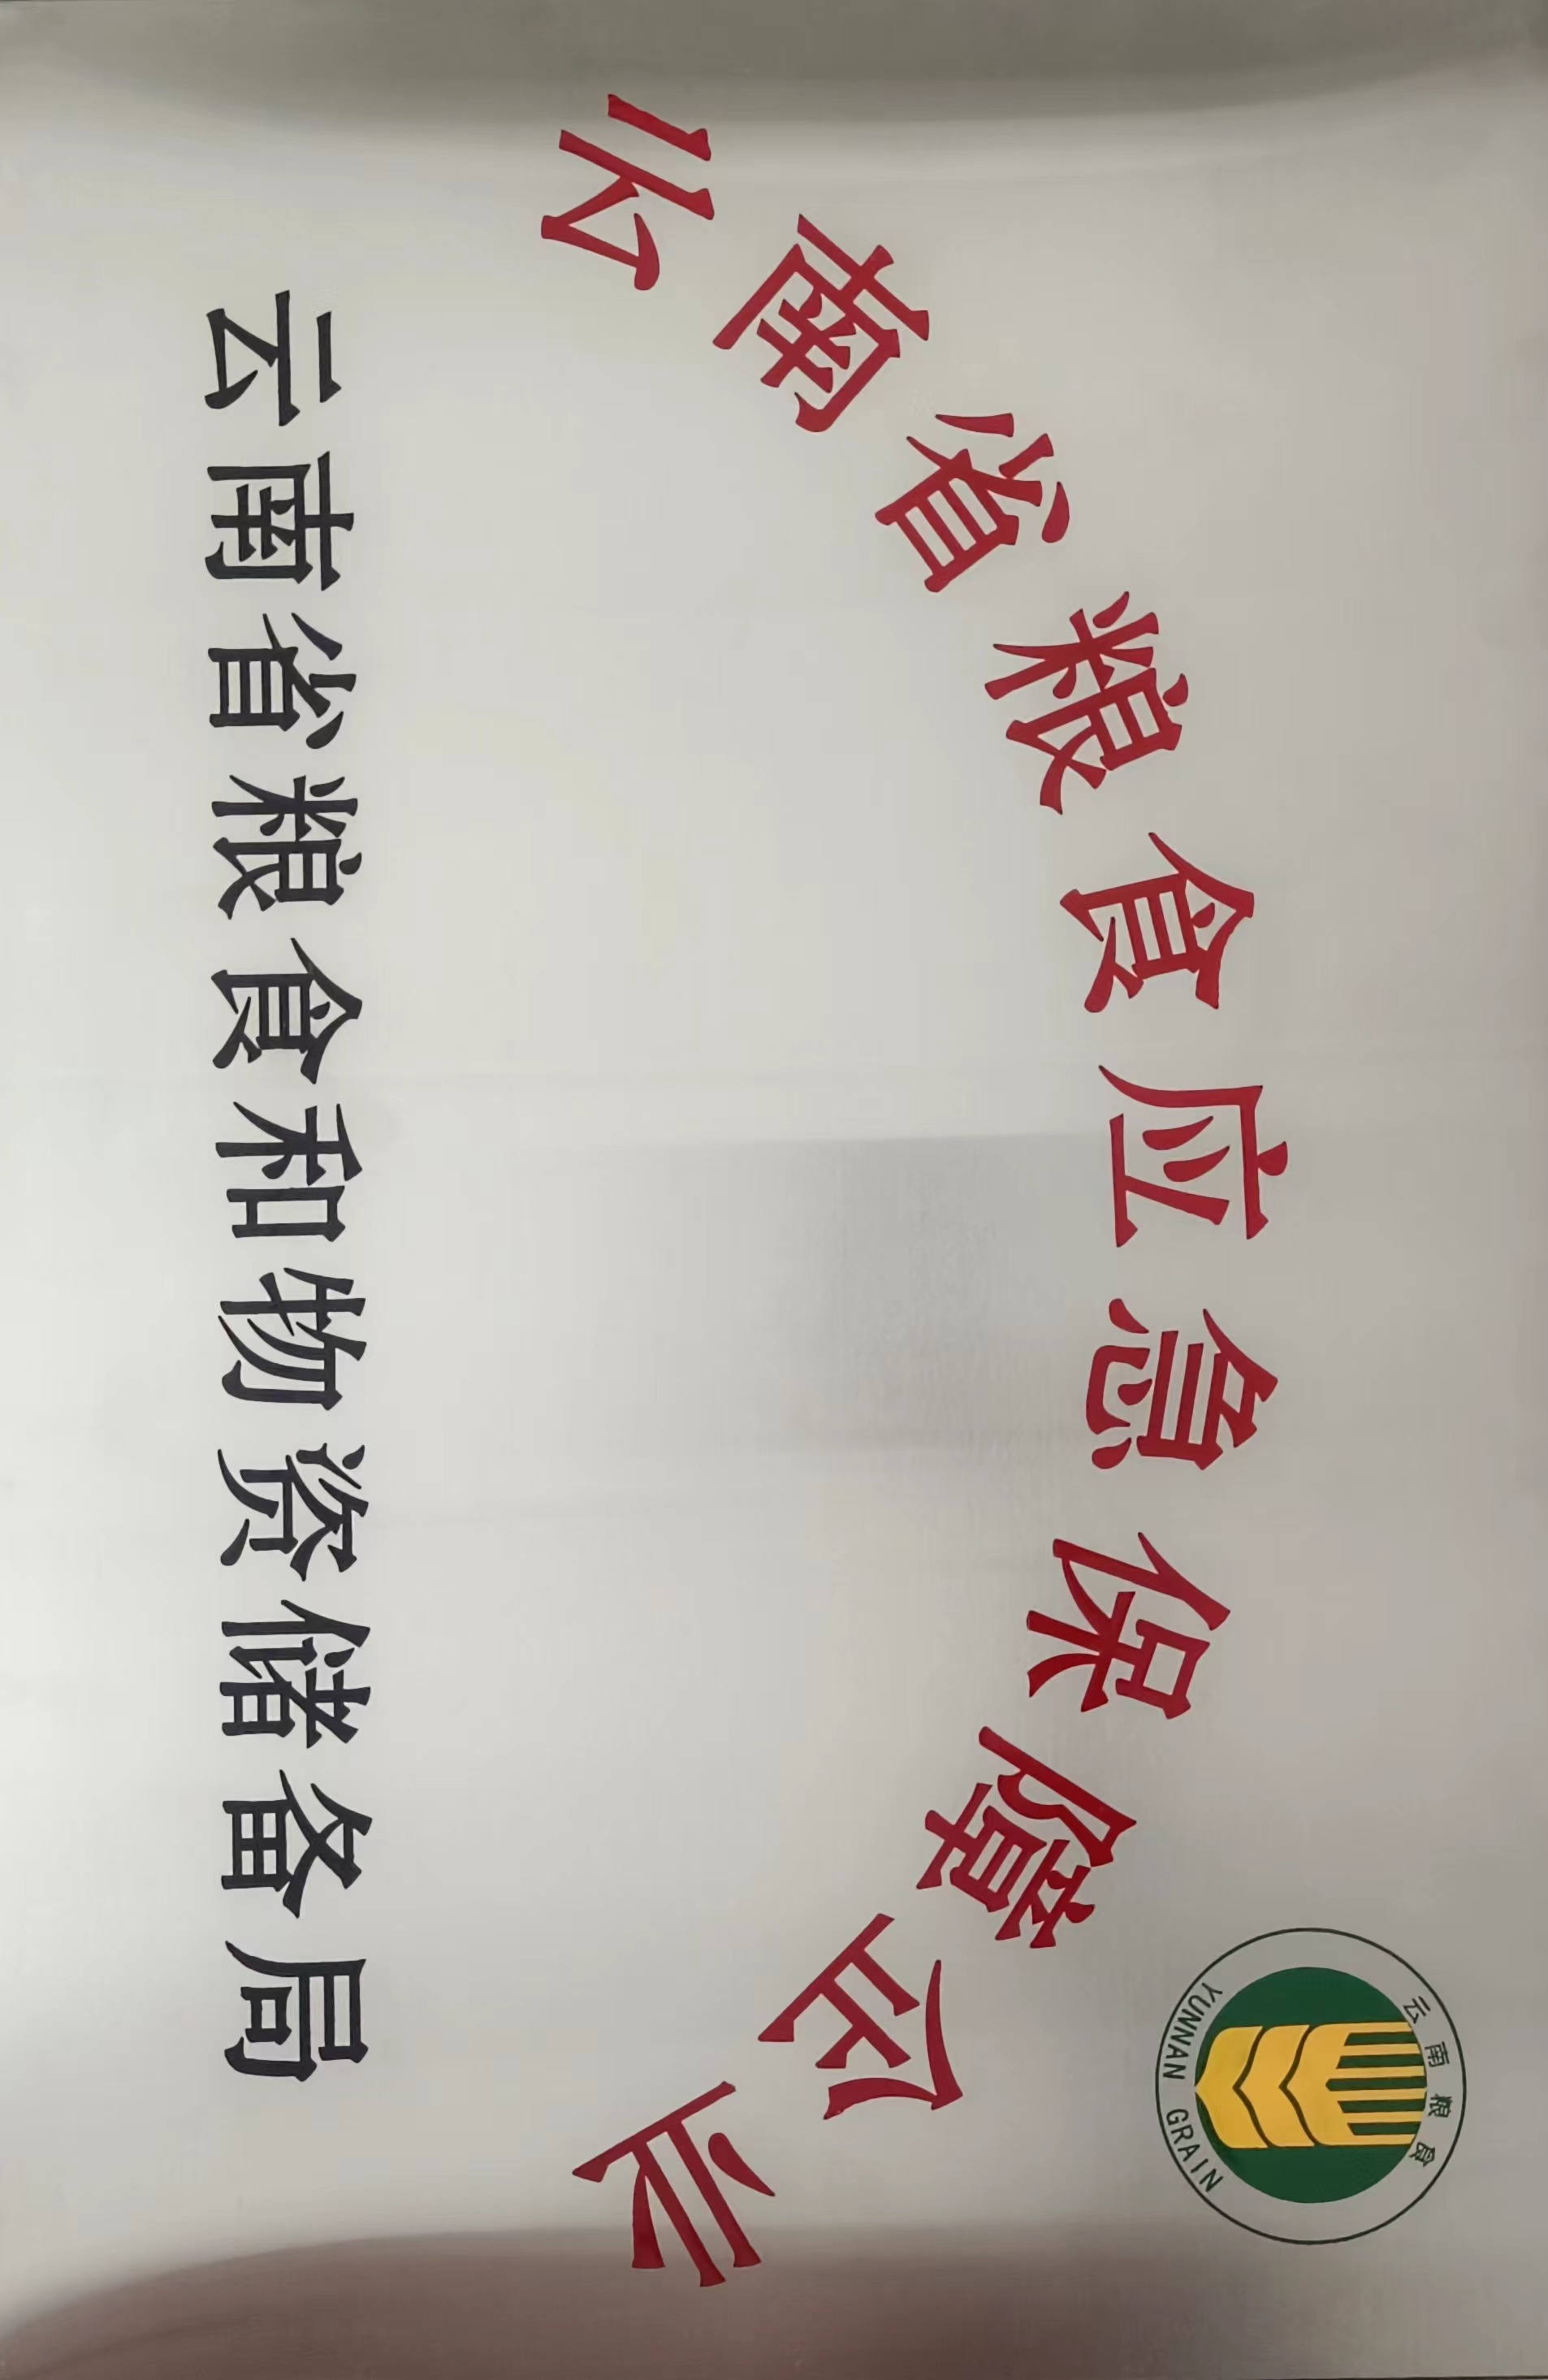 云南粮食
YUNNAN GRAIN
云南省粮食应急保障企业
云南省粮食和物资储备局